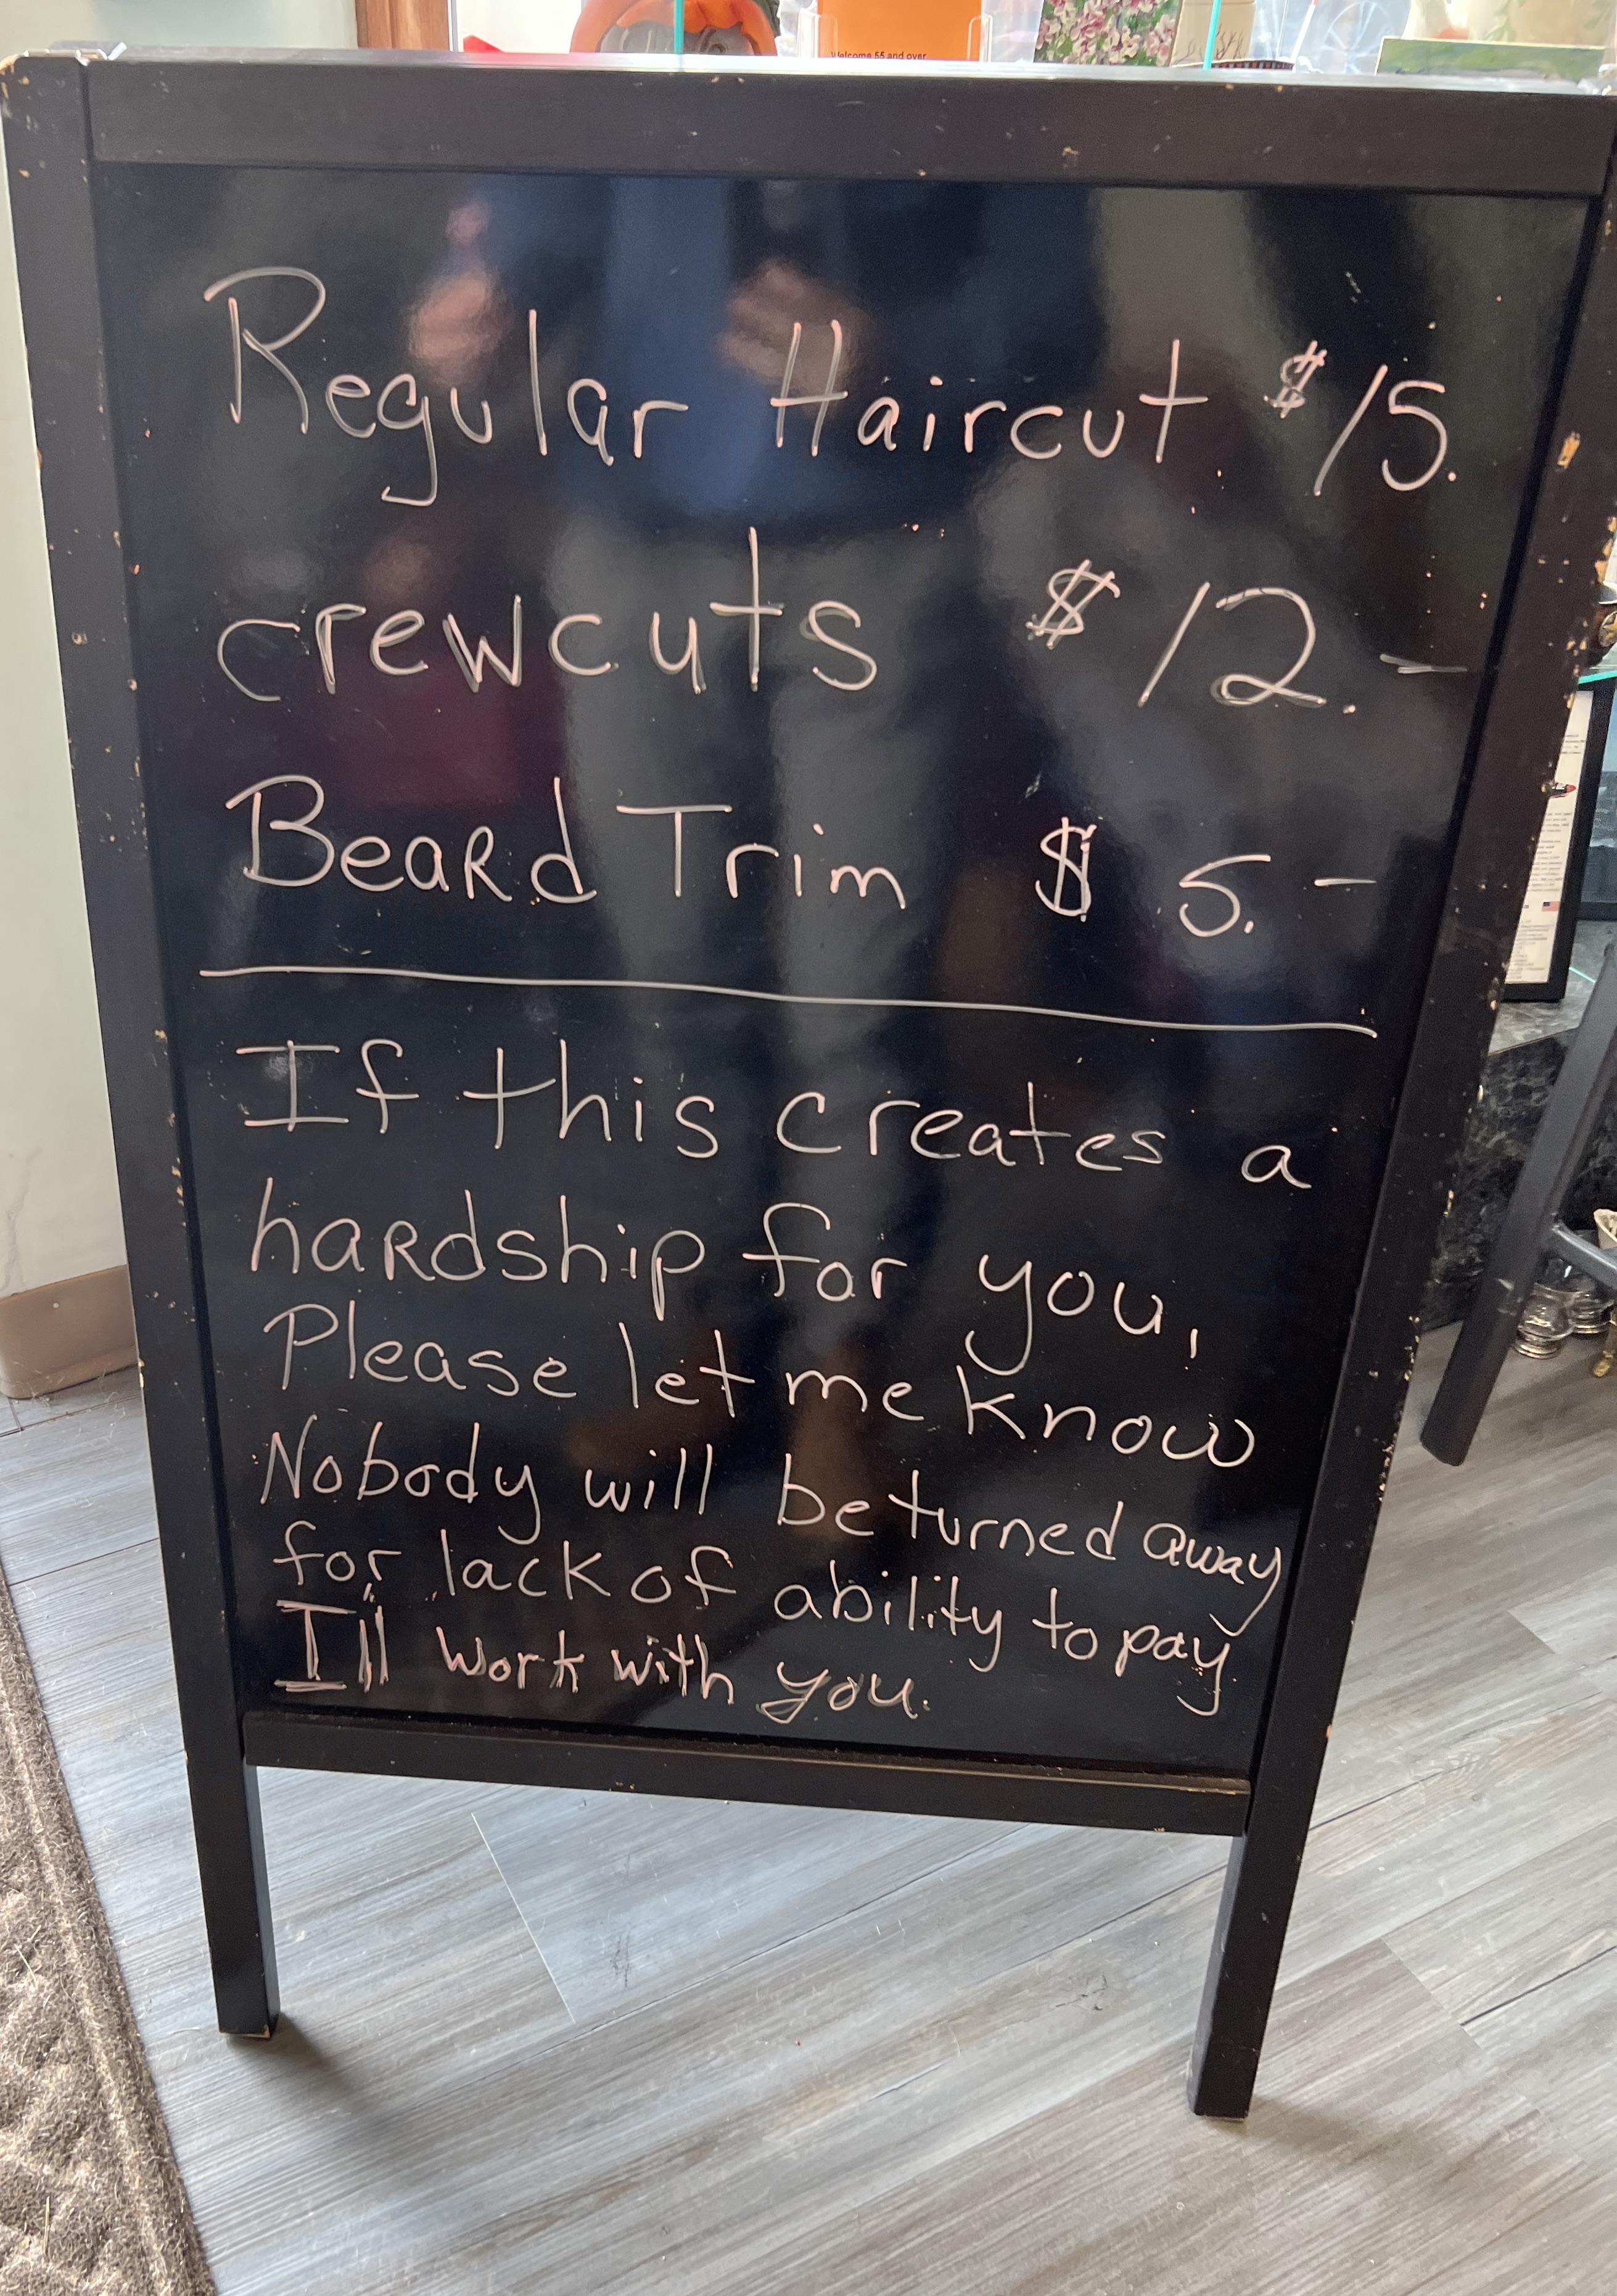 Welcome 55 and over
Regular Haircut $15.
crewcuts $12.-
Beard Trim $5.-
If this creates a
hardship for you,
Please let me know
Nobody will be turned away
for lack of ability to pay
I'll work with you.